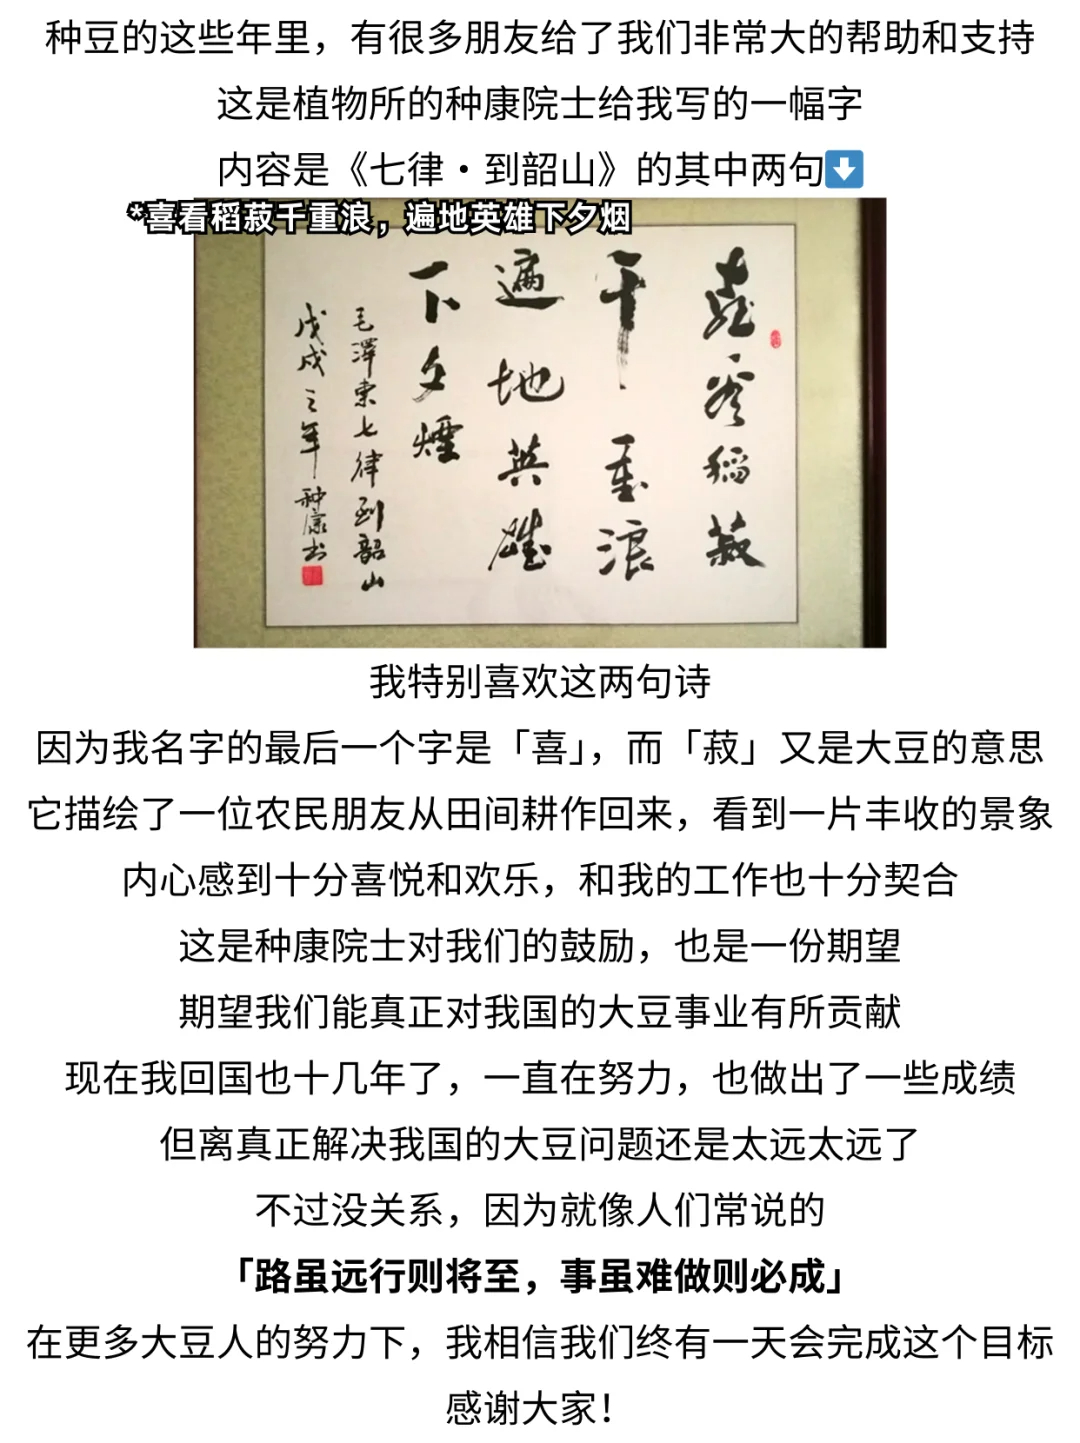 种豆的这些年里，有很多朋友给了我们非常大的帮助和支持
这是植物所的种康院士给我写的一幅字
内容是《七律·到韶山》的其中两句⬇️
*喜看稻菽千重浪，遍地英雄下夕烟
喜看稻菽
千重浪
遍地英雄
下夕煙
毛澤東七律到韶山
戊戌之年 种康书
我特别喜欢这两句诗
因为我名字的最后一个字是「喜」，而「菽」又是大豆的意思
它描绘了一位农民朋友从田间耕作回来，看到一片丰收的景象
内心感到十分喜悦和欢乐，和我的工作也十分契合
这是种康院士对我们的鼓励，也是一份期望
期望我们能真正对我国的大豆事业有所贡献
现在我回国也十几年了，一直在努力，也做出了一些成绩
但离真正解决我国的大豆问题还是太远太远了
不过没关系，因为就像人们常说的
「路虽远行则将至，事虽难做则必成」
在更多大豆人的努力下，我相信我们终有一天会完成这个目标
感谢大家！